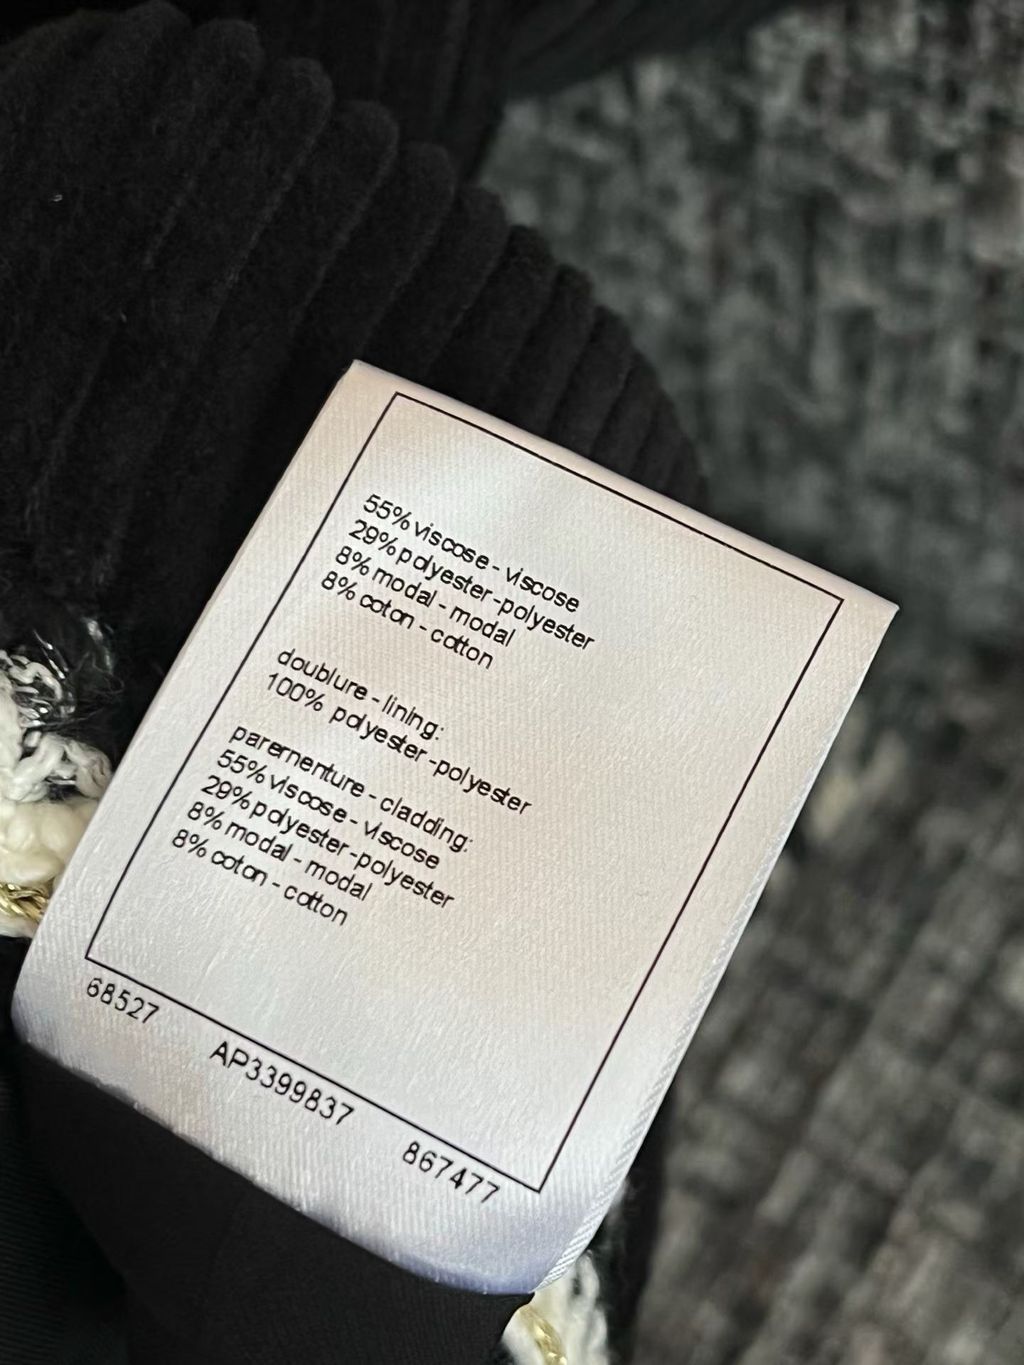 55% viscose - viscose
29% polyester - polyester
8% modal - modal
8% coton - cotton
doublure - lining:
100% polyester - polyester
parementure - cladding:
55% viscose - viscose
29% polyester - polyester
8% modal - modal
8% coton - cotton
68527
AP3399837
867477